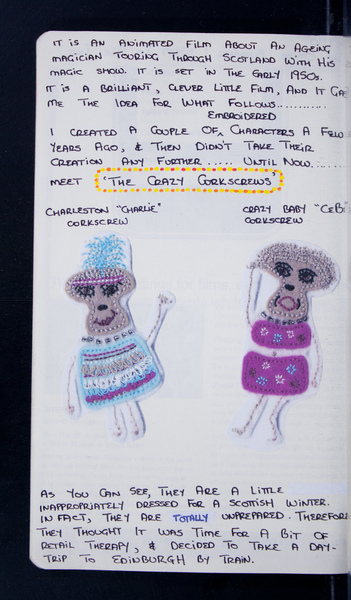 IT IS AN ANIMATED FILM ABOUT AN AGEING
MAGICIAN TOURING THROUGH SCOTLAND WITH HIS
MAGIC SHOW. IT IS SET IN THE EARLY 1950s.
IT IS A BRILLIANT, CLEVER LITTLE FILM, AND IT GA
ME THE IDEA FOR WHAT FOLLOWS...........
EMBROIDERED
I CREATED A COUPLE OF^ CHARACTERS A FEW
YEARS AGO, & THEN DIDN'T TAKE THEIR
CREATION ANY FURTHER ..... UNTIL NOW.....
MEET "THE CRAZY CORKSCREWS"
CHARLESTON "CHARLIE"
CORKSCREW
CRAZY BABY "CEB
CORKSCREW
AS YOU CAN SEE, THEY ARE A LITTLE
INAPPROPRIATELY DRESSED FOR A SCOTTISH WINTER.
IN FACT, THEY ARE TOTALLY UNPREPARED. THEREFOR
THEY THOUGHT IT WAS TIME FOR A BIT OF
RETAIL THERAPY, & DECIDED TO TAKE A DAY-
TRIP TO EDINBURGH BY TRAIN.